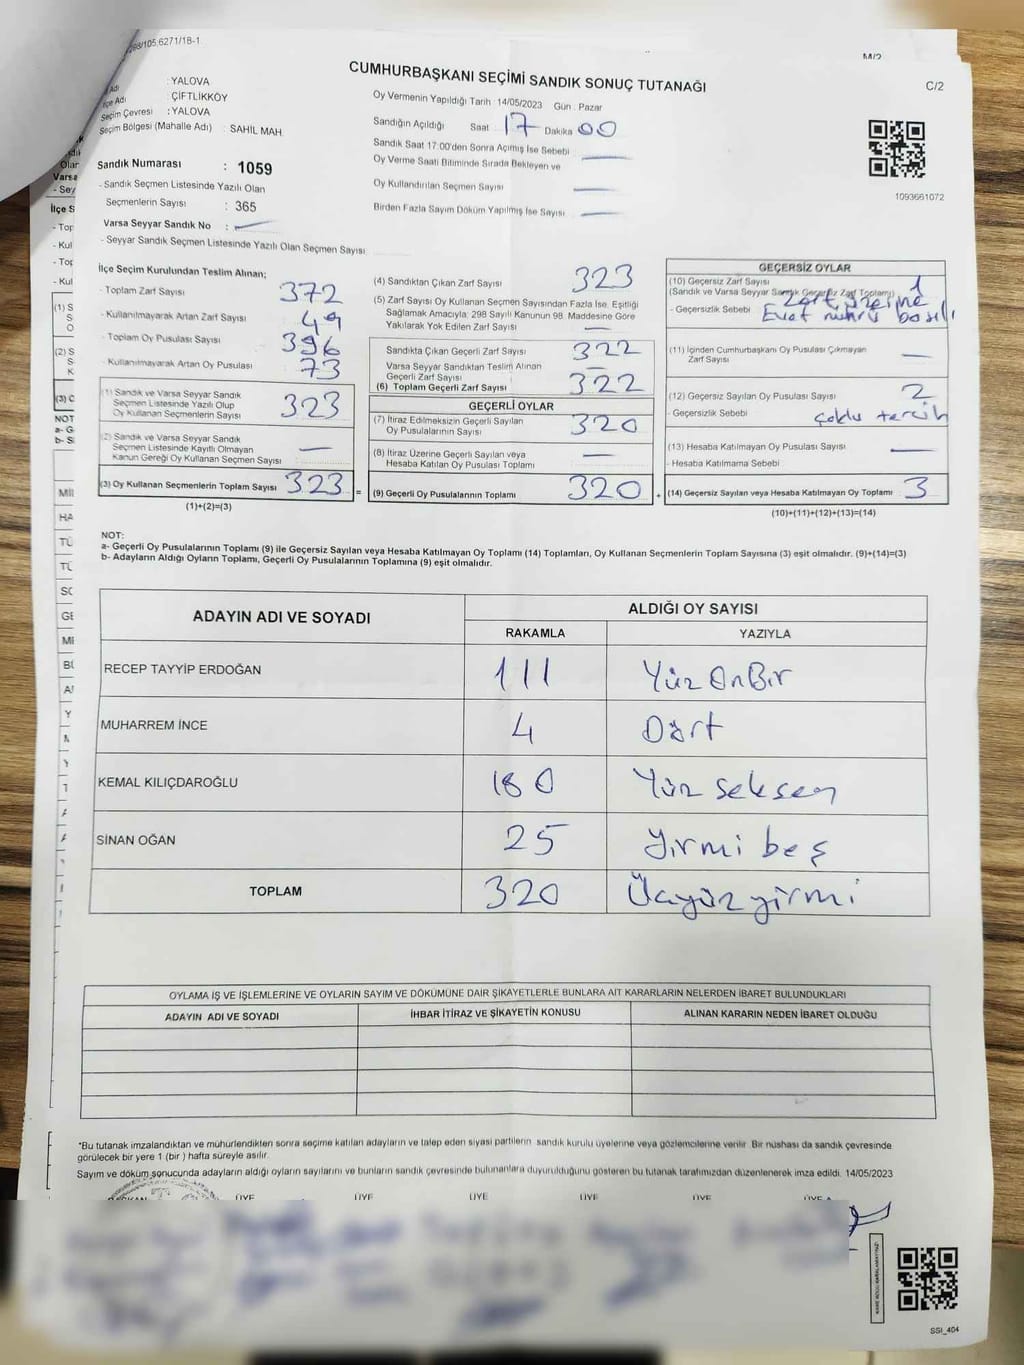 298/105.6271/18-1
M/2
C/2
CUMHURBAŞKANI SEÇİMİ SANDIK SONUÇ TUTANAĞI
: YALOVA
İlçe Adı : ÇİFTLİKKÖY
Seçim Çevresi : YALOVA
Seçim Bölgesi (Mahalle Adı) : SAHİL MAH
Oy Vermenin Yapıldığı Tarih : 14/05/2023 Gün : Pazar
Sandığın Açıldığı Saat 17 Dakika 00
Sandık Saat 17:00'den Sonra Açımış İse Sebebi
Oy Verme Saati Bitiminde Sırada Bekleyen ve
Oy Kullandırılan Seçmen Sayısı
Birden Fazla Sayım Döküm Yapılmış İse Sayısı
1093661072
Sandık Numarası : 1059
- Sandık Seçmen Listesinde Yazılı Olan
Seçmenlerin Sayısı : 365
Varsa Seyyar Sandık No :
- Seyyar Sandık Seçmen Listesinde Yazılı Olan Seçmen Sayısı
İlçe Seçim Kurulundan Teslim Alınan;
- Toplam Zarf Sayısı 372
- Kullanılmayarak Artan Zarf Sayısı 49
- Toplam Oy Pusulası Sayısı 396
- Kullanılmayarak Artan Oy Pusulası 73
(1) Sandık ve Varsa Seyyar Sandık
Seçmen Listesinde Yazılı Olup
Oy Kullanan Seçmenlerin Sayısı 323
(2) Sandık ve Varsa Seyyar Sandık
Seçmen Listesinde Kayıtlı Olmayan
Kanun Gereği Oy Kullanan Seçmen Sayısı
(3) Oy Kullanan Seçmenlerin Toplam Sayısı 323 =
(1)+(2)=(3)
(4) Sandıktan Çıkan Zarf Sayısı 323
(5) Zarf Sayısı Oy Kullanan Seçmen Sayısından Fazla İse, Eşitliği
Sağlamak Amacıyla; 298 Sayılı Kanunun 98. Maddesine Göre
Yakılarak Yok Edilen Zarf Sayısı
Sandıkta Çıkan Geçerli Zarf Sayısı 322
Varsa Seyyar Sandıktan Teslim Alınan
Geçerli Zarf Sayısı
(6) Toplam Geçerli Zarf Sayısı 322
GEÇERLİ OYLAR
(7) İtiraz Edilmeksizin Geçerli Sayılan
Oy Pusulalarının Sayısı 320
(8) İtiraz Üzerine Geçerli Sayılan veya
Hesaba Katılan Oy Pusulası Toplamı
(9) Geçerli Oy Pusulalarının Toplamı 320 +
GEÇERSİZ OYLAR
(10) Geçersiz Zarf Sayısı 1
(Sandık ve Varsa Seyyar Sandık Geçersiz Zarf Toplamı)
- Geçersizlik Sebebi Zarf üzerine
Evet mührü basılı
(11) İçinden Cumhurbaşkanı Oy Pusulası Çıkmayan
Zarf Sayısı
(12) Geçersiz Sayılan Oy Pusulası Sayısı 2
- Geçersizlik Sebebi çoklu tercih
(13) Hesaba Katılmayan Oy Pusulası Sayısı
- Hesaba Katılmama Sebebi
(14) Geçersiz Sayılan veya Hesaba Katılmayan Oy Toplamı 3
(10)+(11)+(12)+(13)=(14)
NOT:
a- Geçerli Oy Pusulalarının Toplamı (9) ile Geçersiz Sayılan veya Hesaba Katılmayan Oy Toplamı (14) Toplamları, Oy Kullanan Seçmenlerin Toplam Sayısına (3) eşit olmalıdır. (9)+(14)=(3)
b- Adayların Aldığı Oyların Toplamı, Geçerli Oy Pusulalarının Toplamına (9) eşit olmalıdır.
ADAYIN ADI VE SOYADI ALDIĞI OY SAYISI
RAKAMLA YAZIYLA
RECEP TAYYİP ERDOĞAN 111 Yüz OnBir
MUHARREM İNCE 4 Dört
KEMAL KILIÇDAROĞLU 180 Yüz seksen
SİNAN OĞAN 25 Yirmi beş
TOPLAM 320 Üçyüz yirmi
OYLAMA İŞ VE İŞLEMLERİNE VE OYLARIN SAYIM VE DÖKÜMÜNE DAİR ŞİKAYETLERLE BUNLARA AİT KARARLARIN NELERDEN İBARET BULUNDUKLARI
ADAYIN ADI VE SOYADI İHBAR İTİRAZ VE ŞİKAYETİN KONUSU ALINAN KARARIN NEDEN İBARET OLDUĞU
*Bu tutanak imzalandıktan ve mühürlendikten sonra seçime katılan adayların ve talep eden siyasi partilerin sandık kurulu üyelerine veya gözlemcilerine verilir. Bir nüshası da sandık çevresinde
görülecek bir yere 1 (bir ) hafta süreyle asılır.
Sayım ve döküm sonucunda adayların aldığı oyların sayılarını ve bunların sandık çevresinde bulunanlara duyurulduğunu gösteren bu tutanak tarafımızdan düzenlenerek imza edildi. 14/05/2023
BAŞKAN ÜYE ÜYE ÜYE ÜYE ÜYE ÜYE
SSI_404